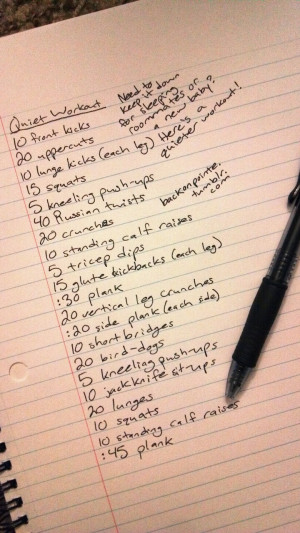 Quiet Workout
10 front kicks
20 uppercuts
10 lunge kicks (each leg)
15 squats
5 kneeling push-ups
40 Russian twists
20 crunches
10 standing calf raises
5 tricep dips
15 glute kickbacks (each leg)
:30 plank
20 vertical leg crunches
:20 side plank (each side)
10 short bridges
20 bird-dogs
5 kneeling push-ups
10 jackknife sit-ups
20 lunges
10 squats
10 standing calf raises
:45 plank
Need to
keep it down
for sleeping
roommates or
a new baby?
Here's a
quieter workout!
backonpointe.
tumblr.
com